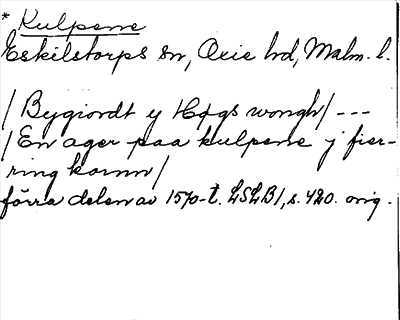 * Kulpene
Eskilstorps sn, Oxie hd, Malm. l.
/ Bygiordt y Høgs wongh / ---
/ En ager paa kulpene y fier-
ring kornn /
förra delen av 1570-t. LSLB1, s. 420. orig.